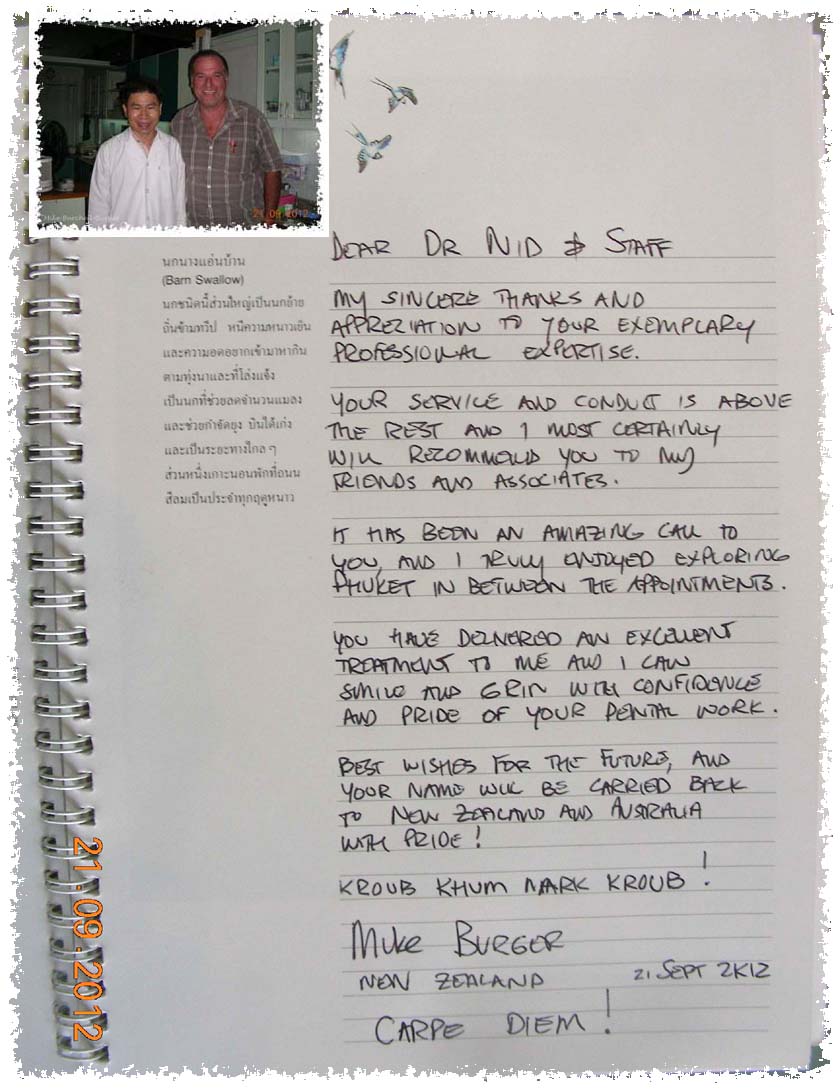 21 09 2012
นกนางแอ่นบ้าน
(Barn Swallow)
นกชนิดนี้ส่วนใหญ่เป็นนกย้าย
ถิ่นข้ามทวีป หนีความหนาวเย็น
และความอดอยากเข้ามาหากิน
ตามทุ่งนาและที่โล่งแจ้ง
เป็นนกที่ช่วยลดจำนวนแมลง
และช่วยกำจัดยุง บินได้เก่ง
และเป็นระยะทางไกล ๆ
ส่วนหนึ่งเกาะนอนพักที่ถนน
สีลมเป็นประจำทุกฤดูหนาว
DEAR DR NID & STAFF
MY SINCERE THANKS AND
APPRECIATION TO YOUR EXEMPLARY
PROFESSIONAL EXPERTISE.
YOUR SERVICE AND CONDUCT IS ABOVE
THE REST AND I MOST CERTAINLY
WILL RECOMMEND YOU TO MY
FRIENDS AND ASSOCIATES.
IT HAS BEEN AN AMAZING CALL TO
YOU, AND I TRULY ENJOYED EXPLORING
PHUKET IN BETWEEN THE APPOINTMENTS.
YOU HAVE DELIVERED AN EXCELLENT
TREATMENT TO ME AND I CAN
SMILE AND GRIN WITH CONFIDENCE
AND PRIDE OF YOUR DENTAL WORK.
BEST WISHES FOR THE FUTURE, AND
YOUR NAME WILL BE CARRIED BACK
TO NEW ZEALAND AND AUSTRALIA
WITH PRIDE!
KROUB KHUM NARK KROUB!
MIKE BURGER
NEW ZEALAND 21 SEPT 2K12
CARPE DIEM!
21.09.2012